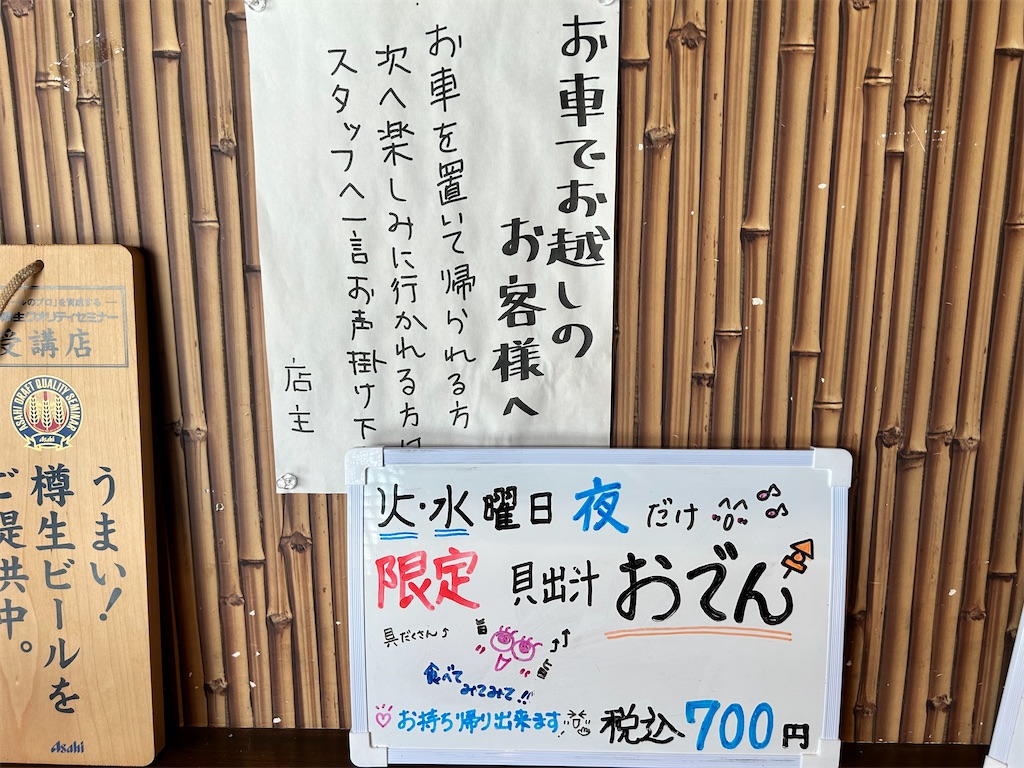 お車でお越しの
お客様へ
お車を置いて帰られる方
次へ楽しみに行かれる方は
スタッフへ一言お声掛け下
店主
火・水曜日夜だけ
限定 貝出汁 おでん
具だくさん♪
食べて
みてみて!!
お持ち帰り出来ます
税込700円
受講店
ASAHI DRAFT QUALITY SEMINAR
Asahi
うまい!
樽生ビールを
ご提供中。
Asahi